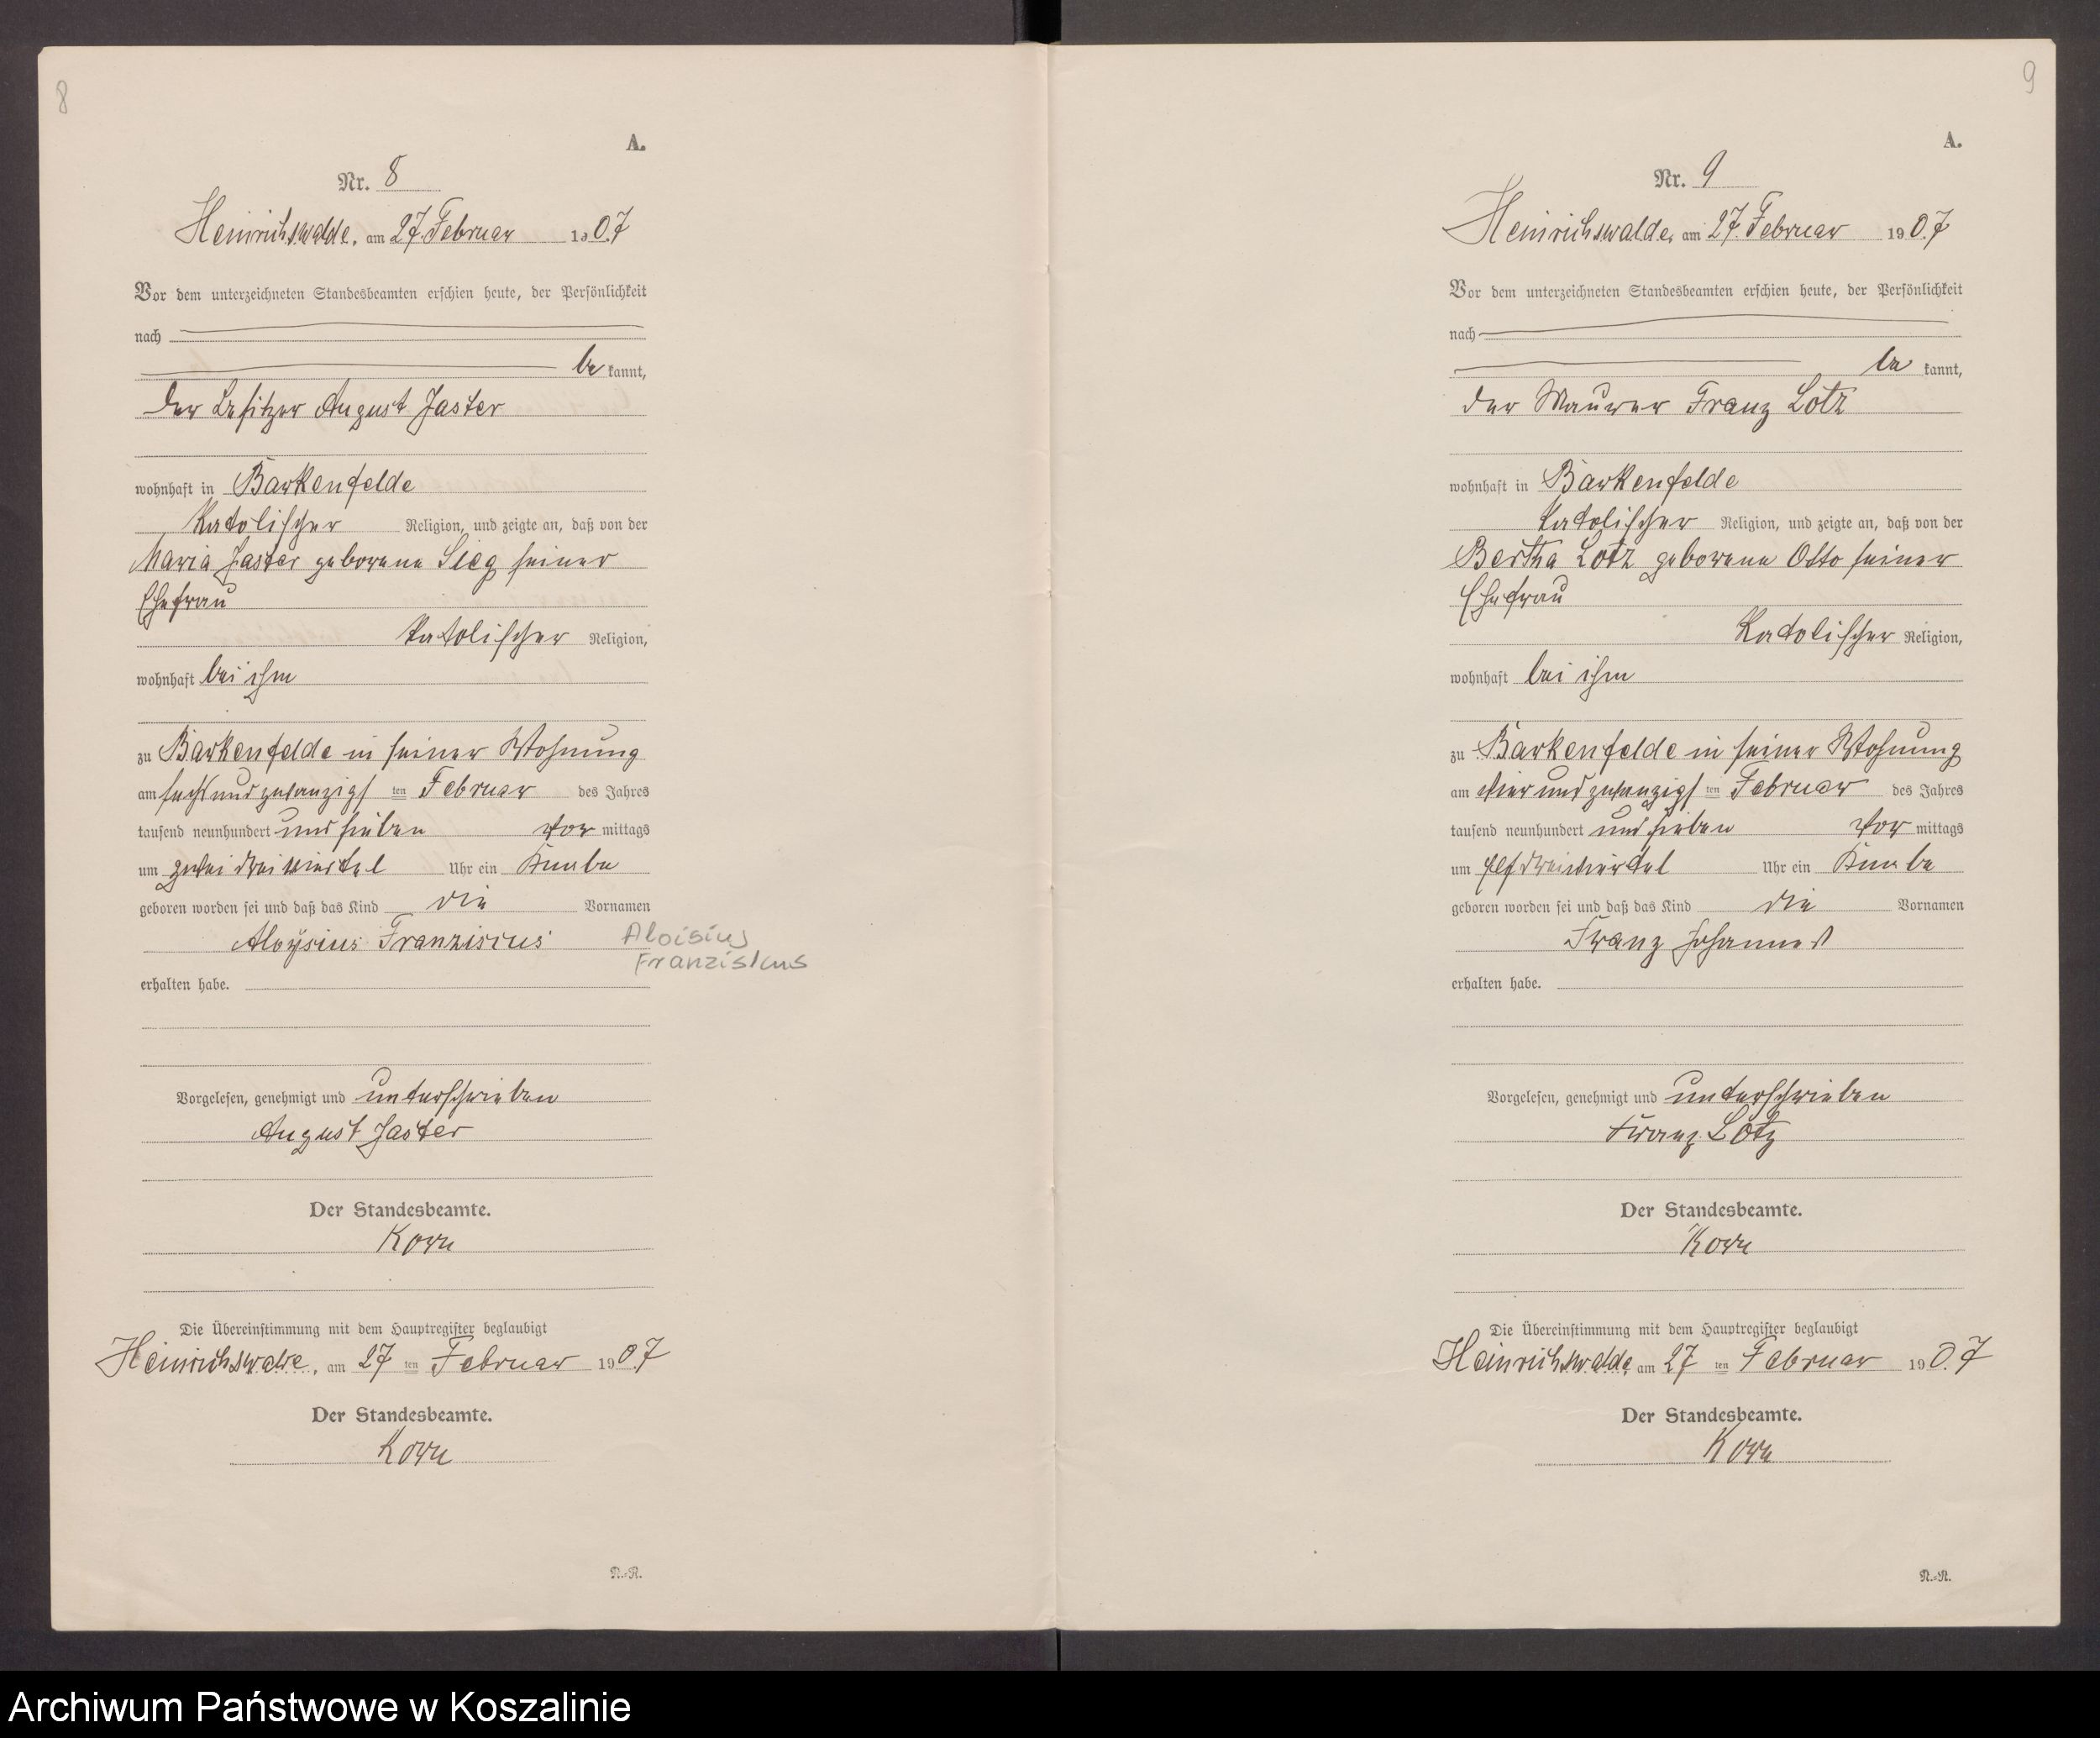 8
A.
Nr. 8
Heinrichswalde, am 27. Februar 1907
Vor dem unterzeichneten Standesbeamten erschien heute, der Persönlichkeit
nach
be kannt,
der Besitzer August Jaster
wohnhaft in Barkenfelde
katolischer Religion, und zeigte an, daß von der
Maria Jaster geborene Sieg seiner
Ehefrau
katolischer Religion,
wohnhaft bei ihm
zu Barkenfelde in seiner Wohnung
am sechsundzwanzigsten Februar des Jahres
tausend neunhundert und sieben vor mittags
um zwei dreiviertel Uhr ein Knabe
geboren worden sei und daß das Kind die Vornamen
Aloysius Franziscus Aloisius
Franziskus
erhalten habe.
Vorgelesen, genehmigt und unterschrieben
August Jaster
Der Standesbeamte.
Korn
Die Übereinstimmung mit dem Hauptregister beglaubigt
Heinrichswalde, am 27 ten Februar 1907
Der Standesbeamte.
Korn
N.-R.
9
A.
Nr. 9
Heinrichswalde, am 27. Februar 1907
Vor dem unterzeichneten Standesbeamten erschien heute, der Persönlichkeit
nach
be kannt,
der Maurer Franz Lotz
wohnhaft in Barkenfelde
katolischer Religion, und zeigte an, daß von der
Bertha Lotz geborene Otto seiner
Ehefrau
katolischer Religion,
wohnhaft bei ihm
zu Barkenfelde in seiner Wohnung
am vierundzwanzigsten Februar des Jahres
tausend neunhundert und sieben vor mittags
um elf dreiviertel Uhr ein Knabe
geboren worden sei und daß das Kind die Vornamen
Franz Johannes
erhalten habe.
Vorgelesen, genehmigt und unterschrieben
Franz Lotz
Der Standesbeamte.
Korn
Die Übereinstimmung mit dem Hauptregister beglaubigt
Heinrichswalde, am 27 ten Februar 1907
Der Standesbeamte.
Korn
N.-R.
Archiwum Państwowe w Koszalinie